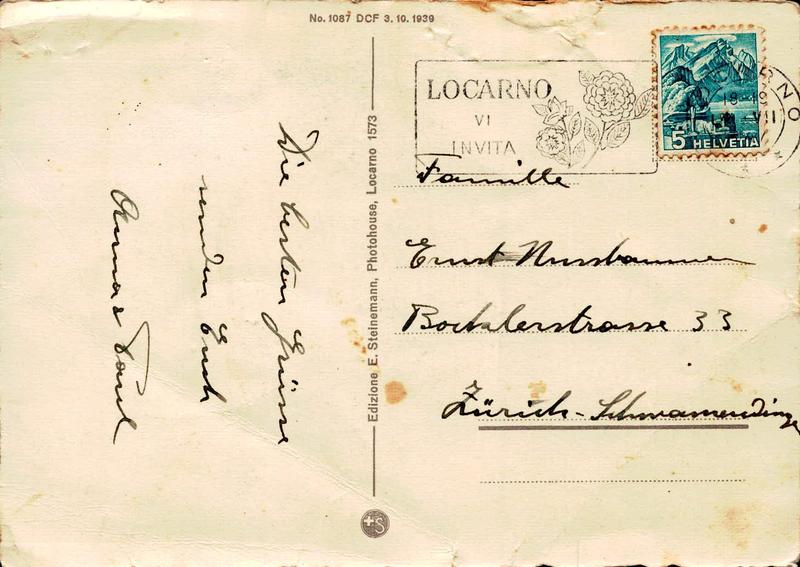 No. 1087 DCF 3. 10. 1939
LOCARNO
VI
INVITA
5 HELVETIA
18-19
VII
Die besten Grüsse
senden Euch
Anna & Paul
Edizione E. Steinemann, Photohouse, Locarno 1573
Famille
Ernst Nussbaumer
Bocklerstrasse 33
Zürich-Schwamendingen
+S